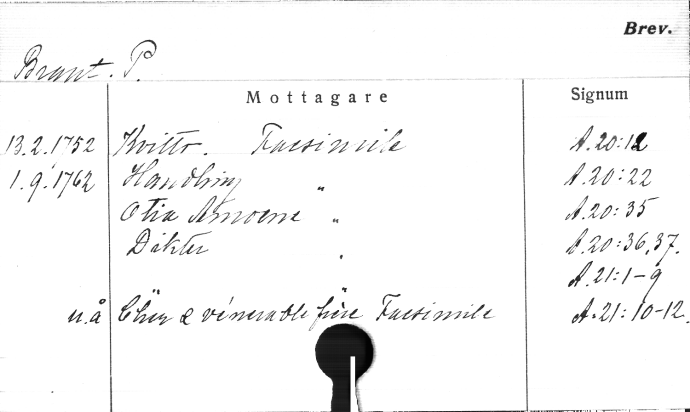 Brev.
Brant. P.
Mottagare Signum
13.2.1752 Kvitto. Facsimile A.20:12
1.9.1762 Handling " A.20:22
Otia Amoena " A.20:35
Dikter " A.20:36,37.
A.21:1-9
u.å Cher & vénérable frère Facsimile A.21:10-12.